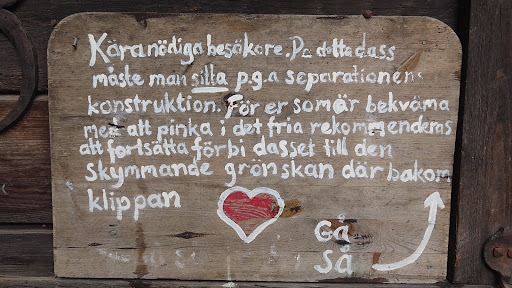 Kära nödiga besökare. På detta dass
måste man sitta p.g.a separationens
konstruktion. För er som är bekväma
med att pinka i det fria rekommenderas
att fortsätta förbi dasset till den
skymmande grönskan där bakom
klippan
Gå
så